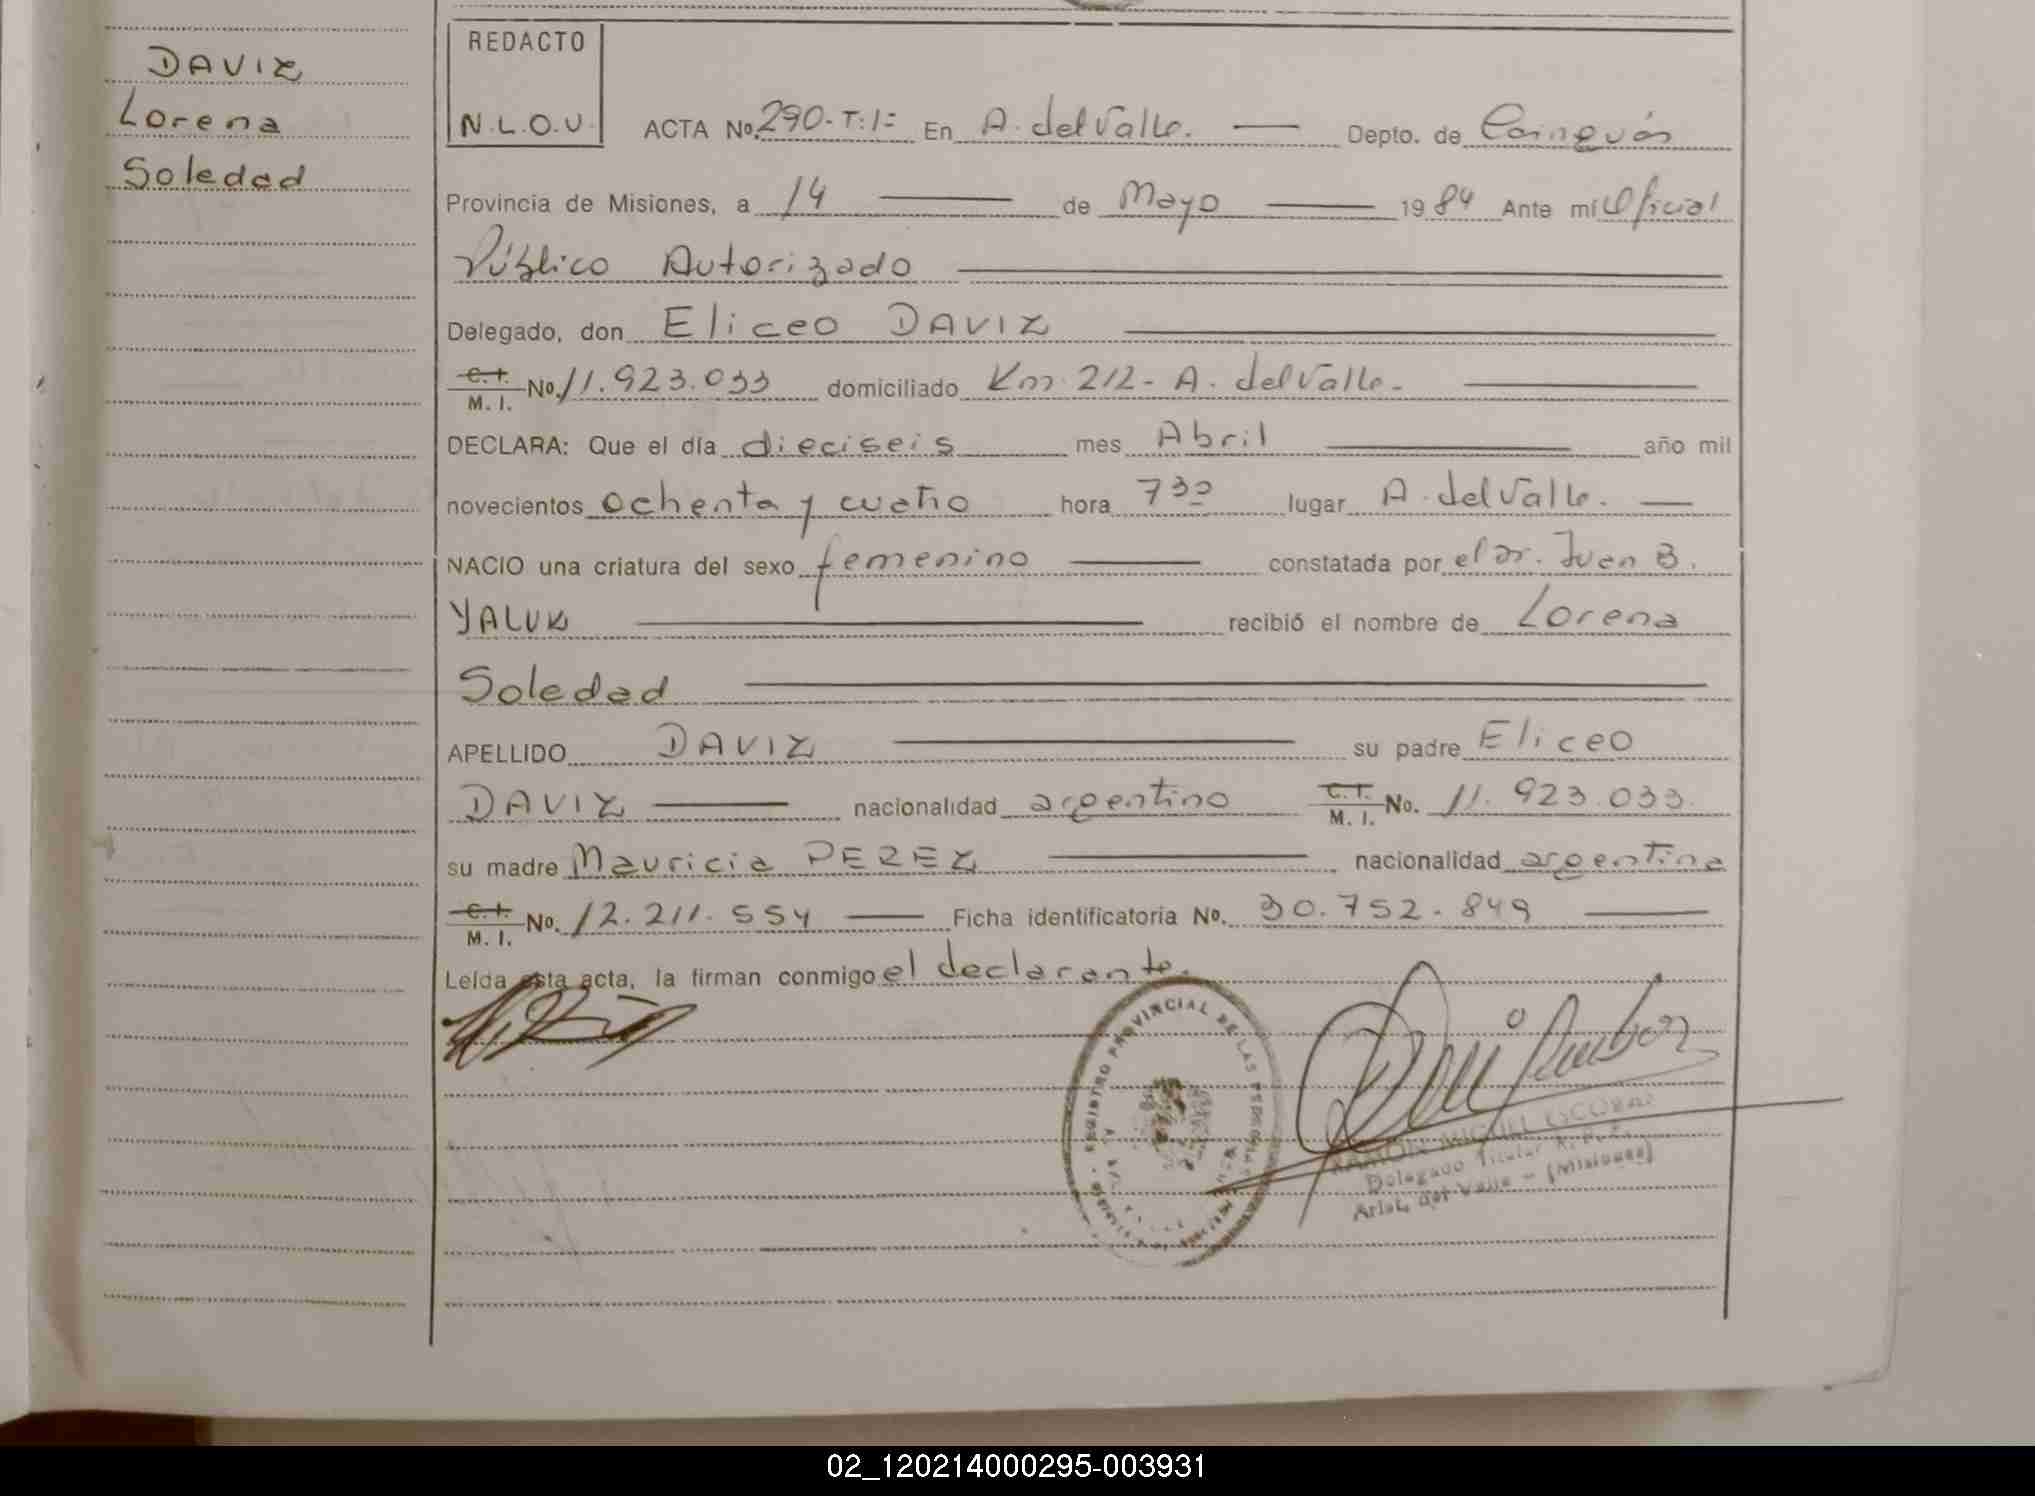 DAVIZ
Lorena
Soledad
REDACTO
N.L.O.V.
ACTA No. 290-T:1= En A. del Valle. Depto. de Cainguás
Provincia de Misiones, a 14 de Mayo 1984 Ante mí Oficial
Público Autorizado
Delegado, don Eliceo DAVIZ
C.I. M. I. No. 11.923.033 domiciliado Km. 212- A. del Valle-
DECLARA: Que el día dieciseis mes Abril año mil
novecientos ochenta y cuatro hora 7 30 lugar A. del Valle.
NACIO una criatura del sexo femenino constatada por el Dr. Juan B.
YALUK recibió el nombre de Lorena
Soledad
APELLIDO DAVIZ su padre Eliceo
DAVIZ nacionalidad argentino C.I. M. I. No. 11.923.033.
su madre Mauricia PEREZ nacionalidad argentina
C.I. M. I. No. 12.211.554 Ficha identificatoria No. 30.752.849
Leída esta acta, la firman conmigo el declarante.
REGISTRO PROVINCIAL DE LAS PERSONAS
RAMON MIGUEL ESCOBAR
Delegado Titular R. P. P.
Arist. del Valle - (Misiones)
02_120214000295-003931